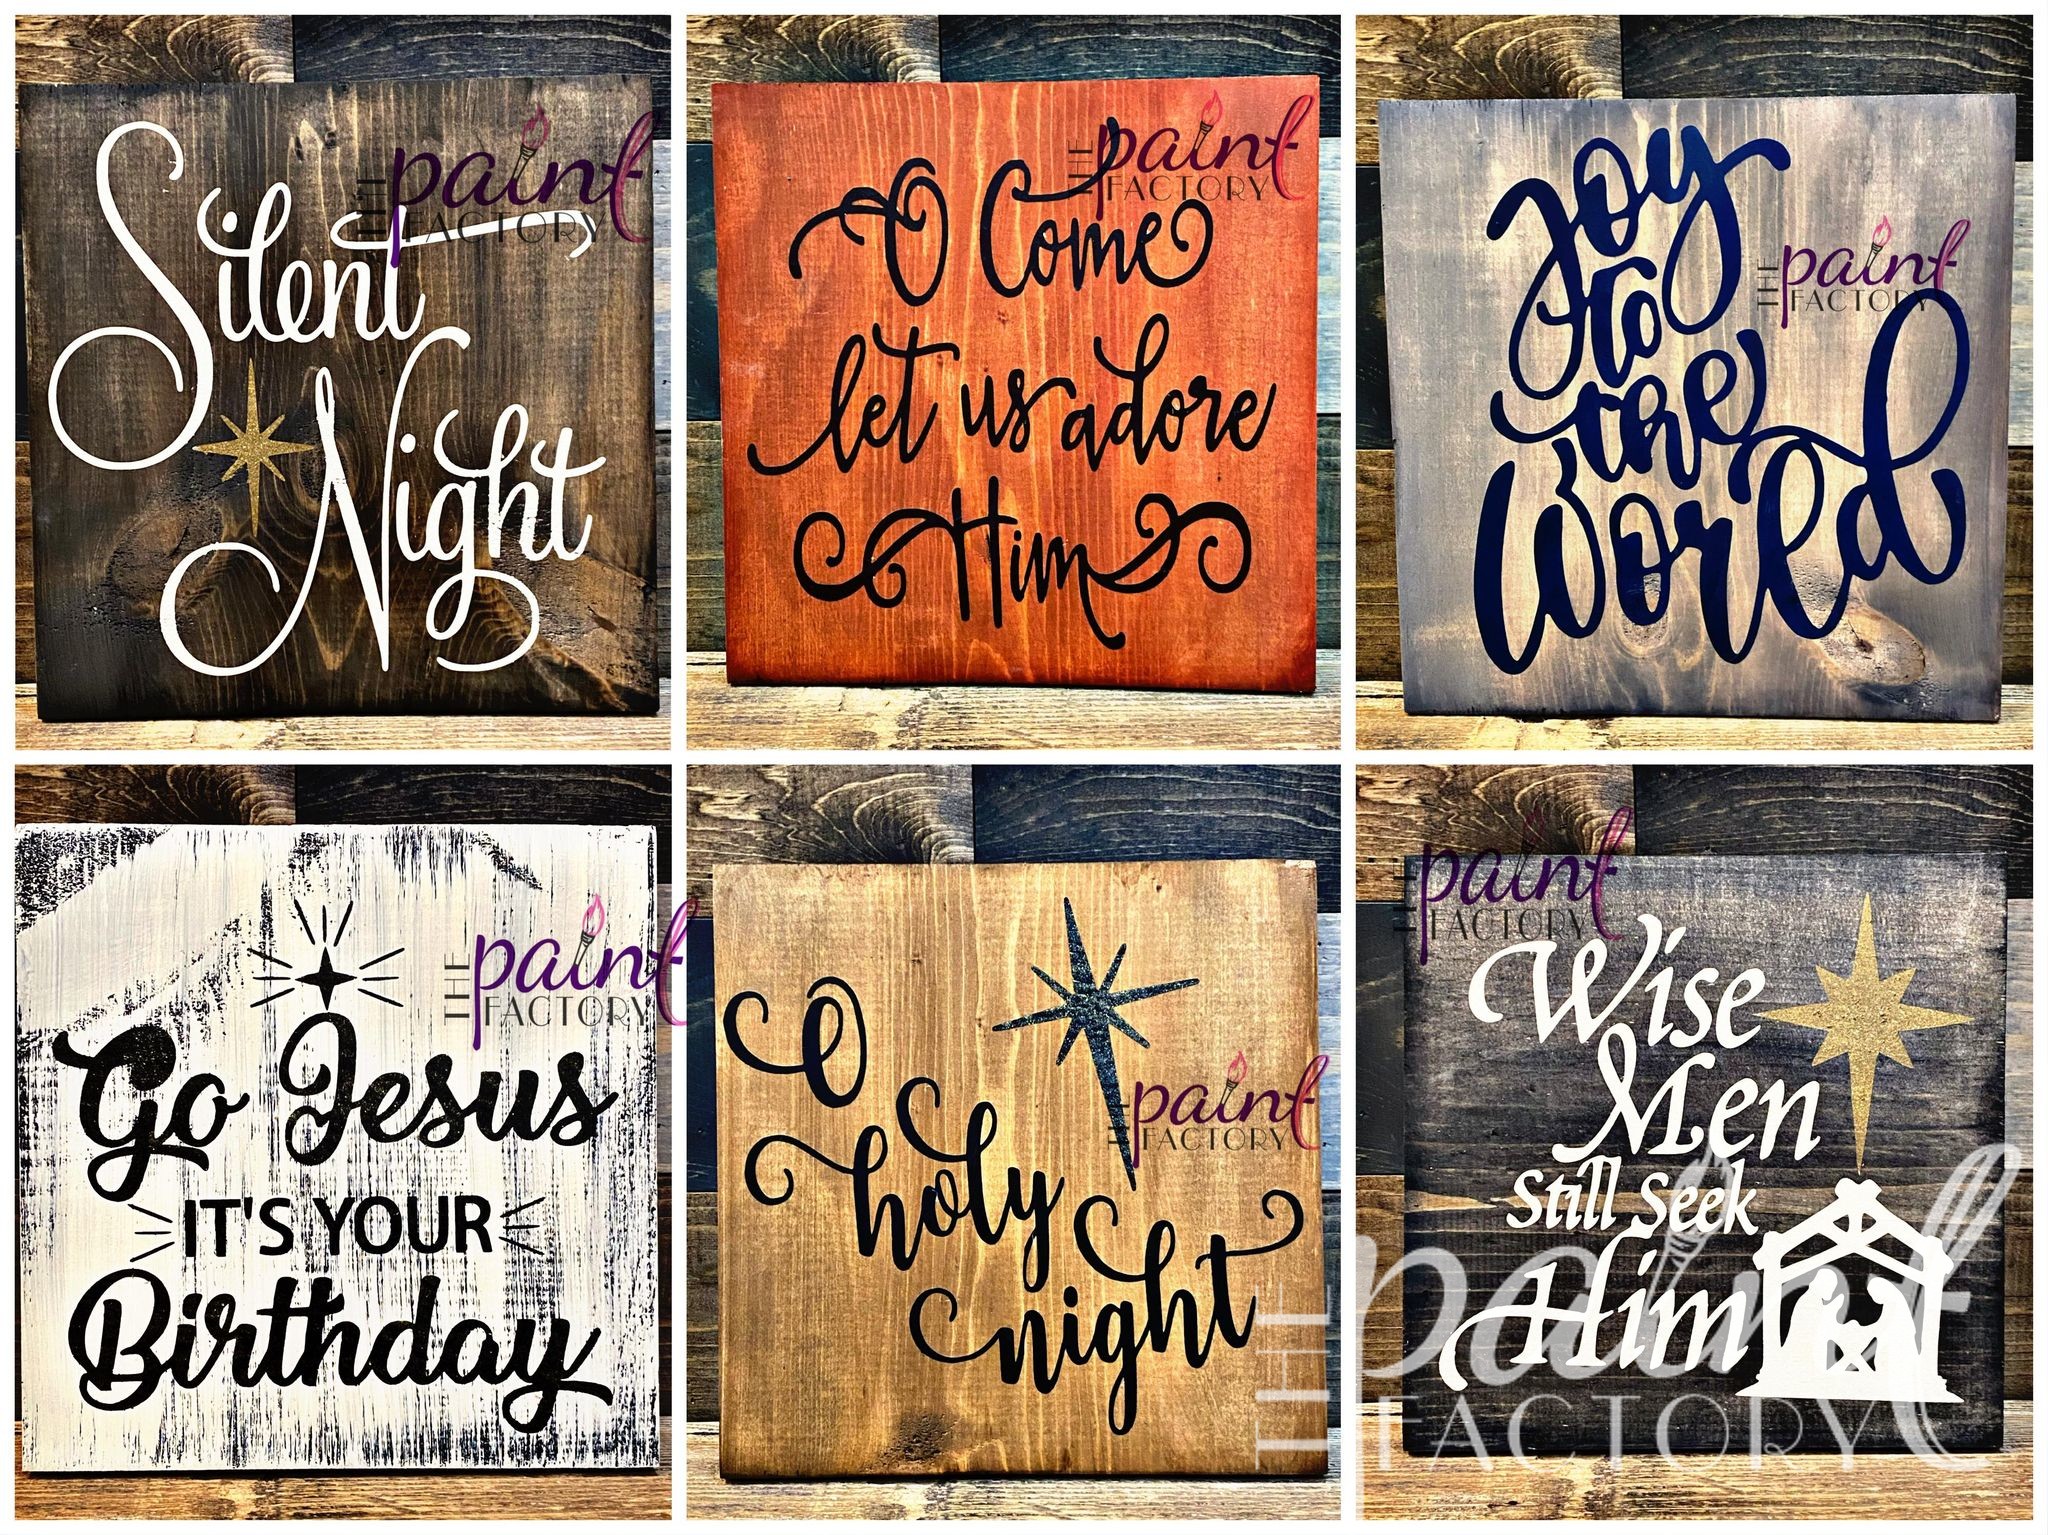 THE paint
FACTORY
Silent
Night
THE paint
FACTORY
O Come
let us adore
Him
THE paint
FACTORY
Joy
to
the
World
THE paint
FACTORY
Go Jesus
IT'S YOUR
Birthday
THE paint
FACTORY
O
holy
night
THE paint
FACTORY
Wise
Men
Still Seek
Him
THE paint
FACTORY